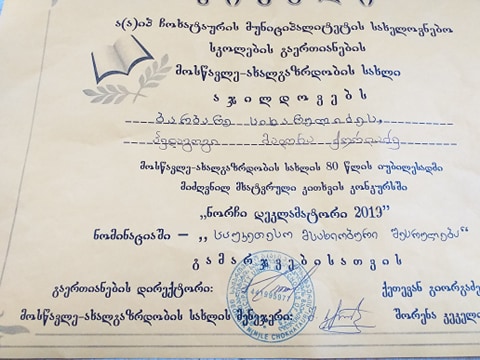 ა(ა)იპ ჩოხატაურის მუნიციპალიტეტის სახელოვნებო
სკოლების გაერთიანების
მოსწავლე-ახალგაზრდობის სახლი
აჯილდოვებს
ბარბარე სიხარულიძეს,
პედაგოგი მადონა
მოსწავლე-ახალგაზრდობის სახლის 80 წლის იუბილესადმი
მიძღვნილ მხატვრული კითხვის კონკურსში
„ნორჩი დეკლამატორი 2013"
ნომინაციაში – „ საუკეთესო მსახიობური შესრულება“
გამარჯვებისათვის
გაერთიანების დირექტორი: ქეთევან გიორგაძე
მოსწავლე-ახალგაზრდობის სახლის მენეჯერი: შორენა